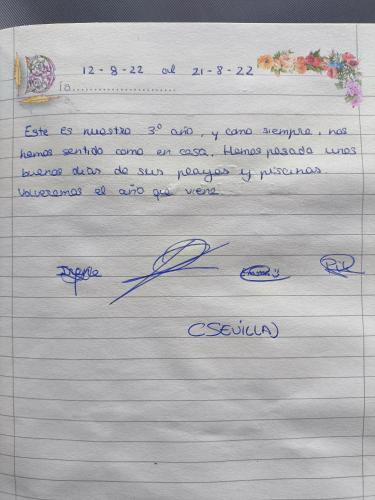 12-8-22 al 21-8-22
Día
Este es nuestro 3.º año, y como siempre, nos
hemos sentido como en casa. Hemos pasado unos
buenos días de sus playas y piscinas.
Volveremos el año que viene.
Irene
(SEVILLA)